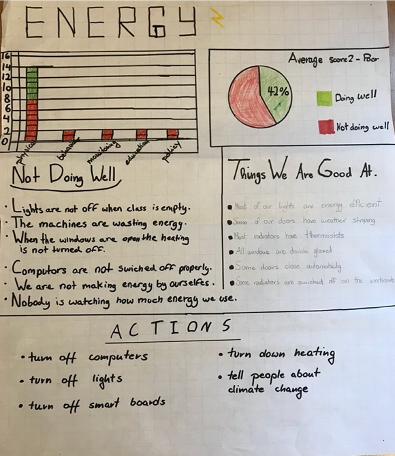 ENERGY
16
14
12
10
8
6
4
2
0
physical
behaviour
monitoring
education
policy
Average score 2 - Poor
42%
Doing well
Not doing well
Not Doing Well
• Lights are not off when class is empty.
• The machines are wasting energy.
• When the windows are open the heating
is not turned off.
• Computers are not swiched off properly.
• We are not making energy by ourselfes.
• Nobody is watching how much energy we use.
Things We Are Good At.
• Most of our lights are energy efficient
• Some of our doors have weather striping
• Most radiators have thermostats
• All windows are double glazed
• Some doors close automatically
• Some radiators are swiched off on the
ACTIONS
• turn off computers
• turn off lights
• turn off smart boards
• turn down heating
• tell people about
climate change